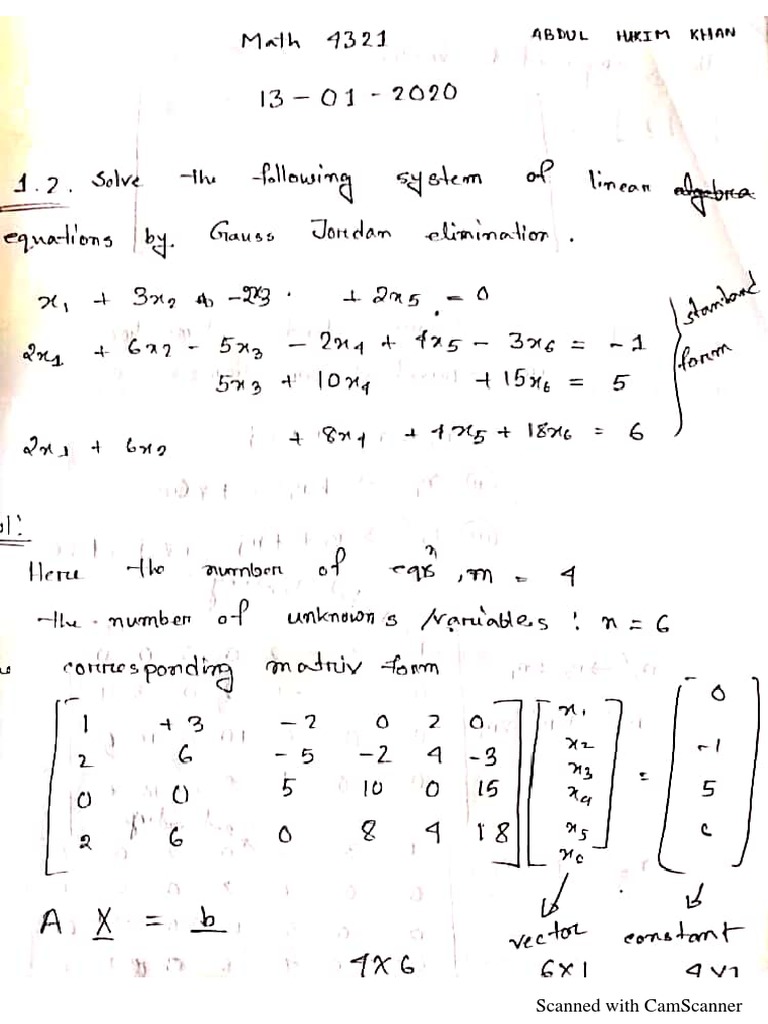 Math 4321
ABDUL HAKIM KHAN
13-01-2020
1.2. Solve the following system of linear algebra
equations by. Gauss Jordan elimination.
x₁ + 3x₂ -2x3 + 2x5 = 0
2x1 + 6x2 - 5x3 - 2x4 + 4x5 - 3x6 = -1
5x3 + 10x4 + 15x6 = 5
2x1 + 6x2 + 8x4 + 4x5 + 18x6 = 6
standard form
ol:
Here the number of eqⁿs, m = 4
the number of unknowns/variables: n = 6
corresponding matrix form
[ 1 +3 -2 0 2 0 ] [ x1 ] [ 0 ]
[ 2 6 -5 -2 4 -3 ] [ x2 x3 ] = [ -1 ]
[ 0 0 5 10 0 15 ] [ x4 ] [ 5 ]
[ 2 6 0 8 4 18 ] [ x5 x6 ] [ 6 ]
A X = b
vector constant
4×6 6×1 4×1
Scanned with CamScanner